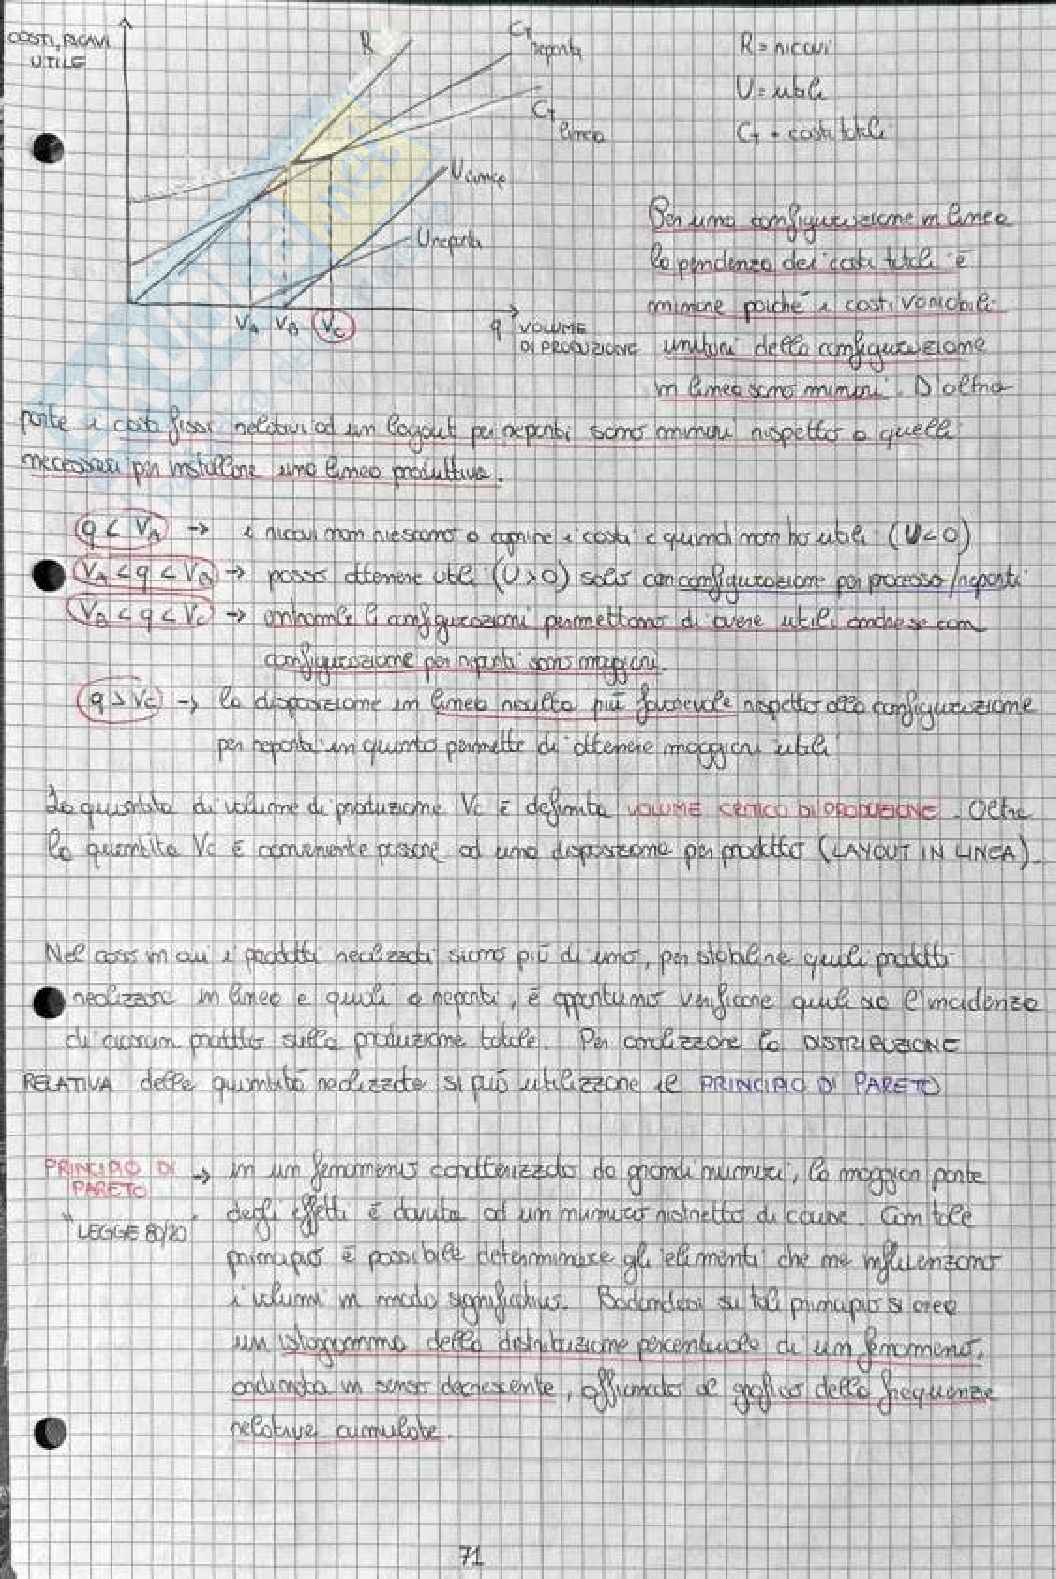 COSTI, RICAVI
UTILE
R
CT reparti
CT linea
U linea
U reparti
VA VB VC
q VOLUME
DI PRODUZIONE
R = ricavi
U = utile
CT = costi totali
Per una configurazione in linea
la pendenza dei costi totali è
minore poiché i costi variabili
unitari della configurazione
in linea sono minori. D'altra
parte i costi fissi relativi ad un layout per reparti sono minori rispetto a quelli
necessari per installare una linea produttiva.
q < VA → i ricavi non riescono a coprire i costi e quindi non ho utili (U<0)
VA < q < VB → posso ottenere utili (U>0) solo con configurazione per processo/reparti
VB < q < VC → entrambe le configurazioni permettono di avere utili anche se con
configurazione per reparti sono maggiori.
q > VC → la disposizione in linea risulta più favorevole rispetto alla configurazione
per reparti in quanto permette di ottenere maggiori utili
La quantità di volume di produzione VC è definita VOLUME CRITICO DI PRODUZIONE. Oltre
la quantità VC è conveniente passare ad una disposizione per prodotto (LAYOUT IN LINEA).
Nel caso in cui i prodotti realizzati siano più di uno, per stabilire quali prodotti
realizzare in linea e quali a reparti, è opportuno verificare quale sia l'incidenza
di ciascun prodotto sulla produzione totale. Per analizzare la DISTRIBUZIONE
RELATIVA delle quantità realizzate si può utilizzare il PRINCIPIO DI PARETO
PRINCIPIO DI → in un fenomeno caratterizzato da grandi numeri, la maggior parte
PARETO
"LEGGE 80/20" degli effetti è dovuta ad un numero ristretto di cause. Con tale
principio è possibile determinare gli elementi che ne influenzano
i volumi in modo significativo. Basandosi su tale principio si crea
un istogramma della distribuzione percentuale di un fenomeno,
ordinata in senso decrescente, affiancato al grafico delle frequenze
relative cumulate.
71